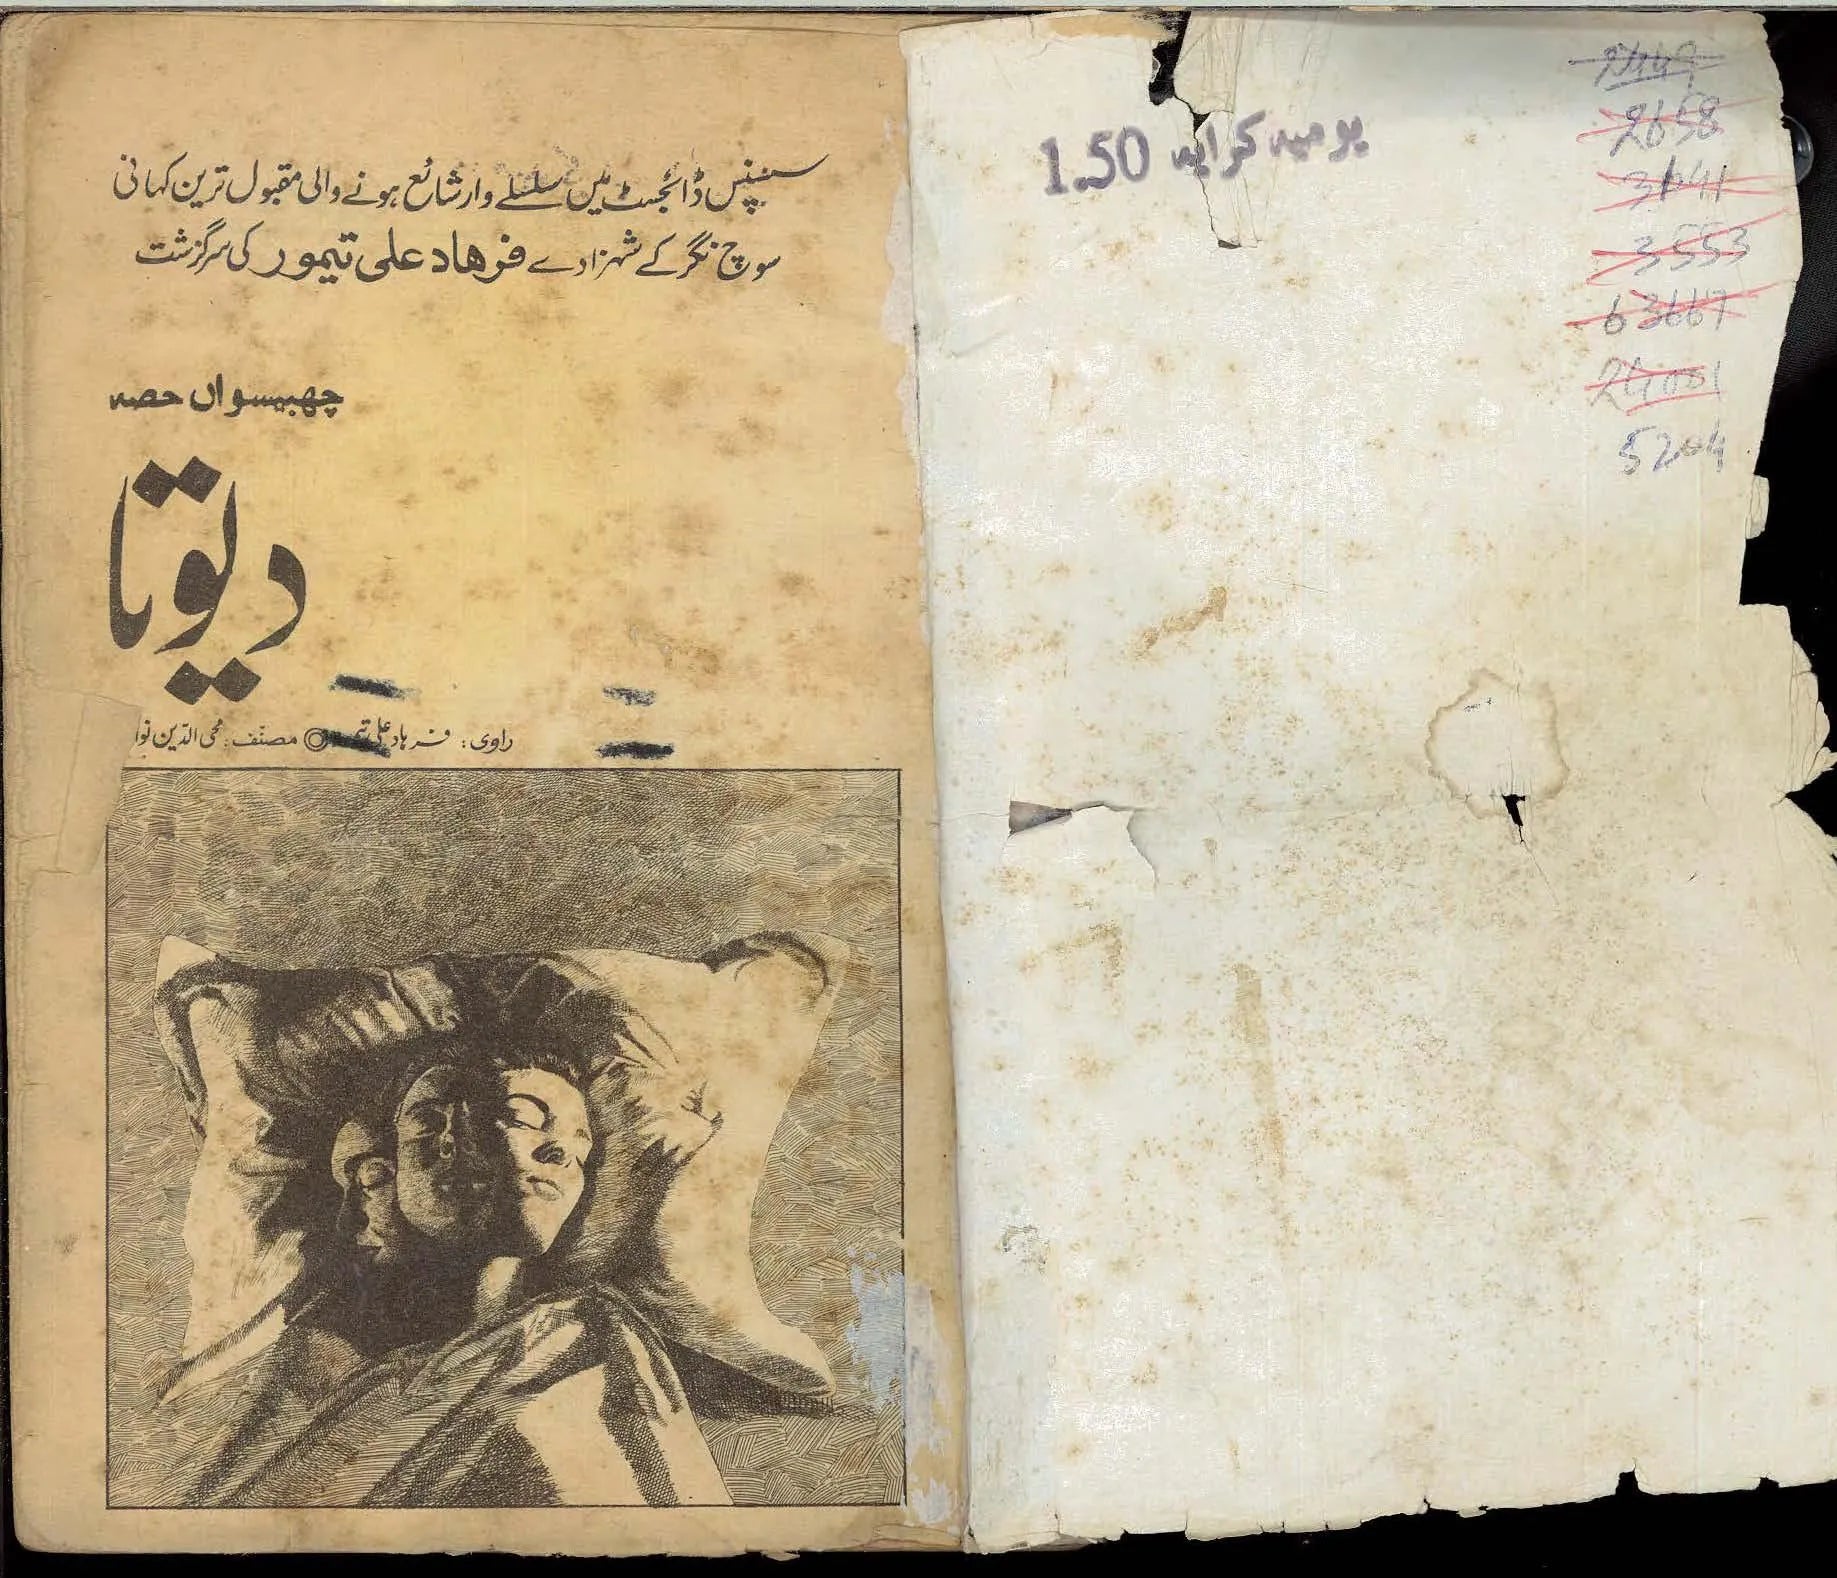 سسپنس ڈائجسٹ میں سلسلے وار شائع ہونے والی مقبول ترین کہانی
سوچ نگر کے شہزادے فرہاد علی تیمور کی سرگزشت
چھبیسواں حصہ
دیوتا
راوی: فرہاد علی تیمور ◎ مصنّف: محی الدّین نوا
یومیہ کرایہ 1.50
2658
3141
3553
63667
24001
5204